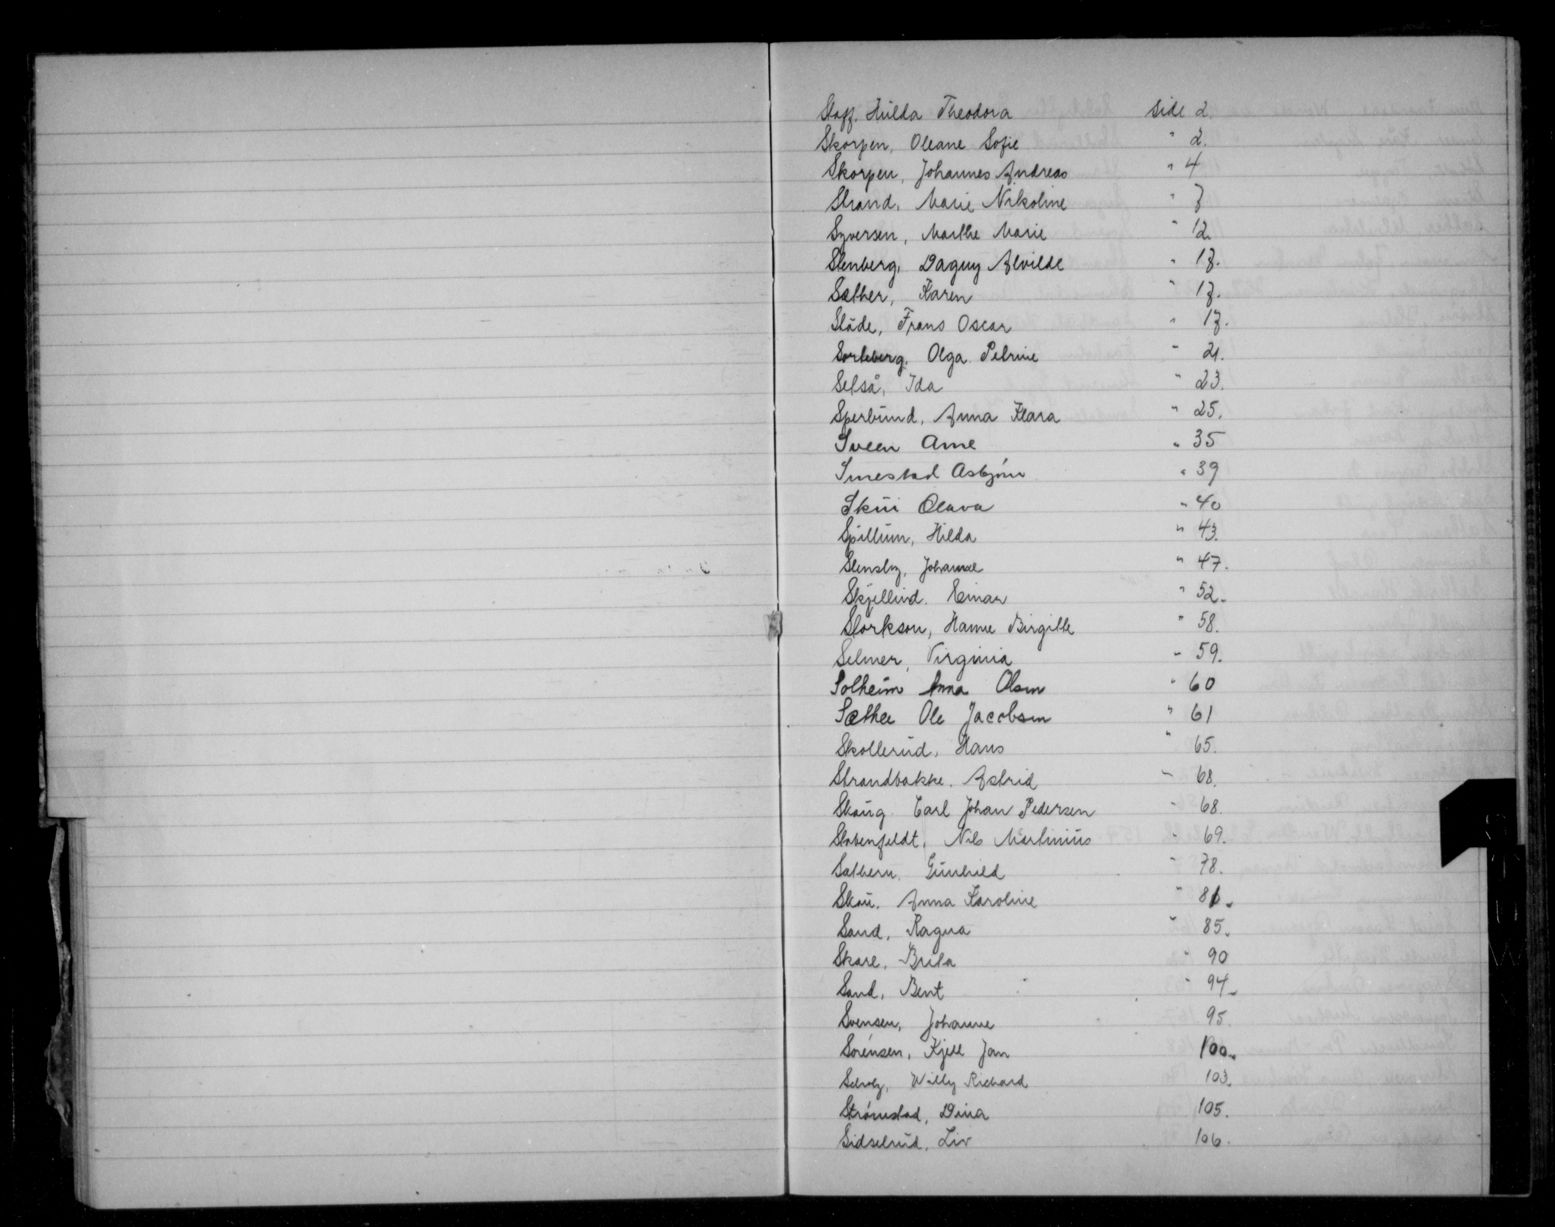 Staff. Hulda Theodora side 2.
Skorpen, Oleane Sofie " 2.
Skorpen, Johannes Andreas " 4
Strand, Marie Nikoline " 7
Syversen, Marthe Marie " 12.
Stenberg, Dagny Alvilde " 17.
Sæther, Karen " 17.
Ståde, Frans Oscar " 17.
Sorteberg, Olga Petrine " 21.
Selså, Ida " 23.
Sperlund, Anna Klara " 25.
Sveen Arne " 35
Smestad Asbjørn " 39
Skui Olava " 40
Spillum, Hilda " 43.
Stensby, Johanne " 47.
Skjellind. Einar " 52.
Storkson, Hanne Birgitte " 58.
Selmer, Virginia " 59.
Solheim Anna Olsen " 60
Sæther Ole Jacobsen " 61
Skollerud, Hans " 65.
Strandbakke. Astrid " 68.
Skaug Carl Johan Pedersen " 68.
Stabenfeldt, Nils Martinius " 69.
Sathern, Gunhild " 78.
Skau. Anna Karoline " 81.
Sand, Ragna " 85.
Skare, Brita " 90
Sand, Bent " 94.
Svensen, Johanne 95.
Sørensen, Kjell Jan 100.
Scholz, Willy Richard 103.
Strømstad, Dina 105.
Sidselrud, Liv 106.